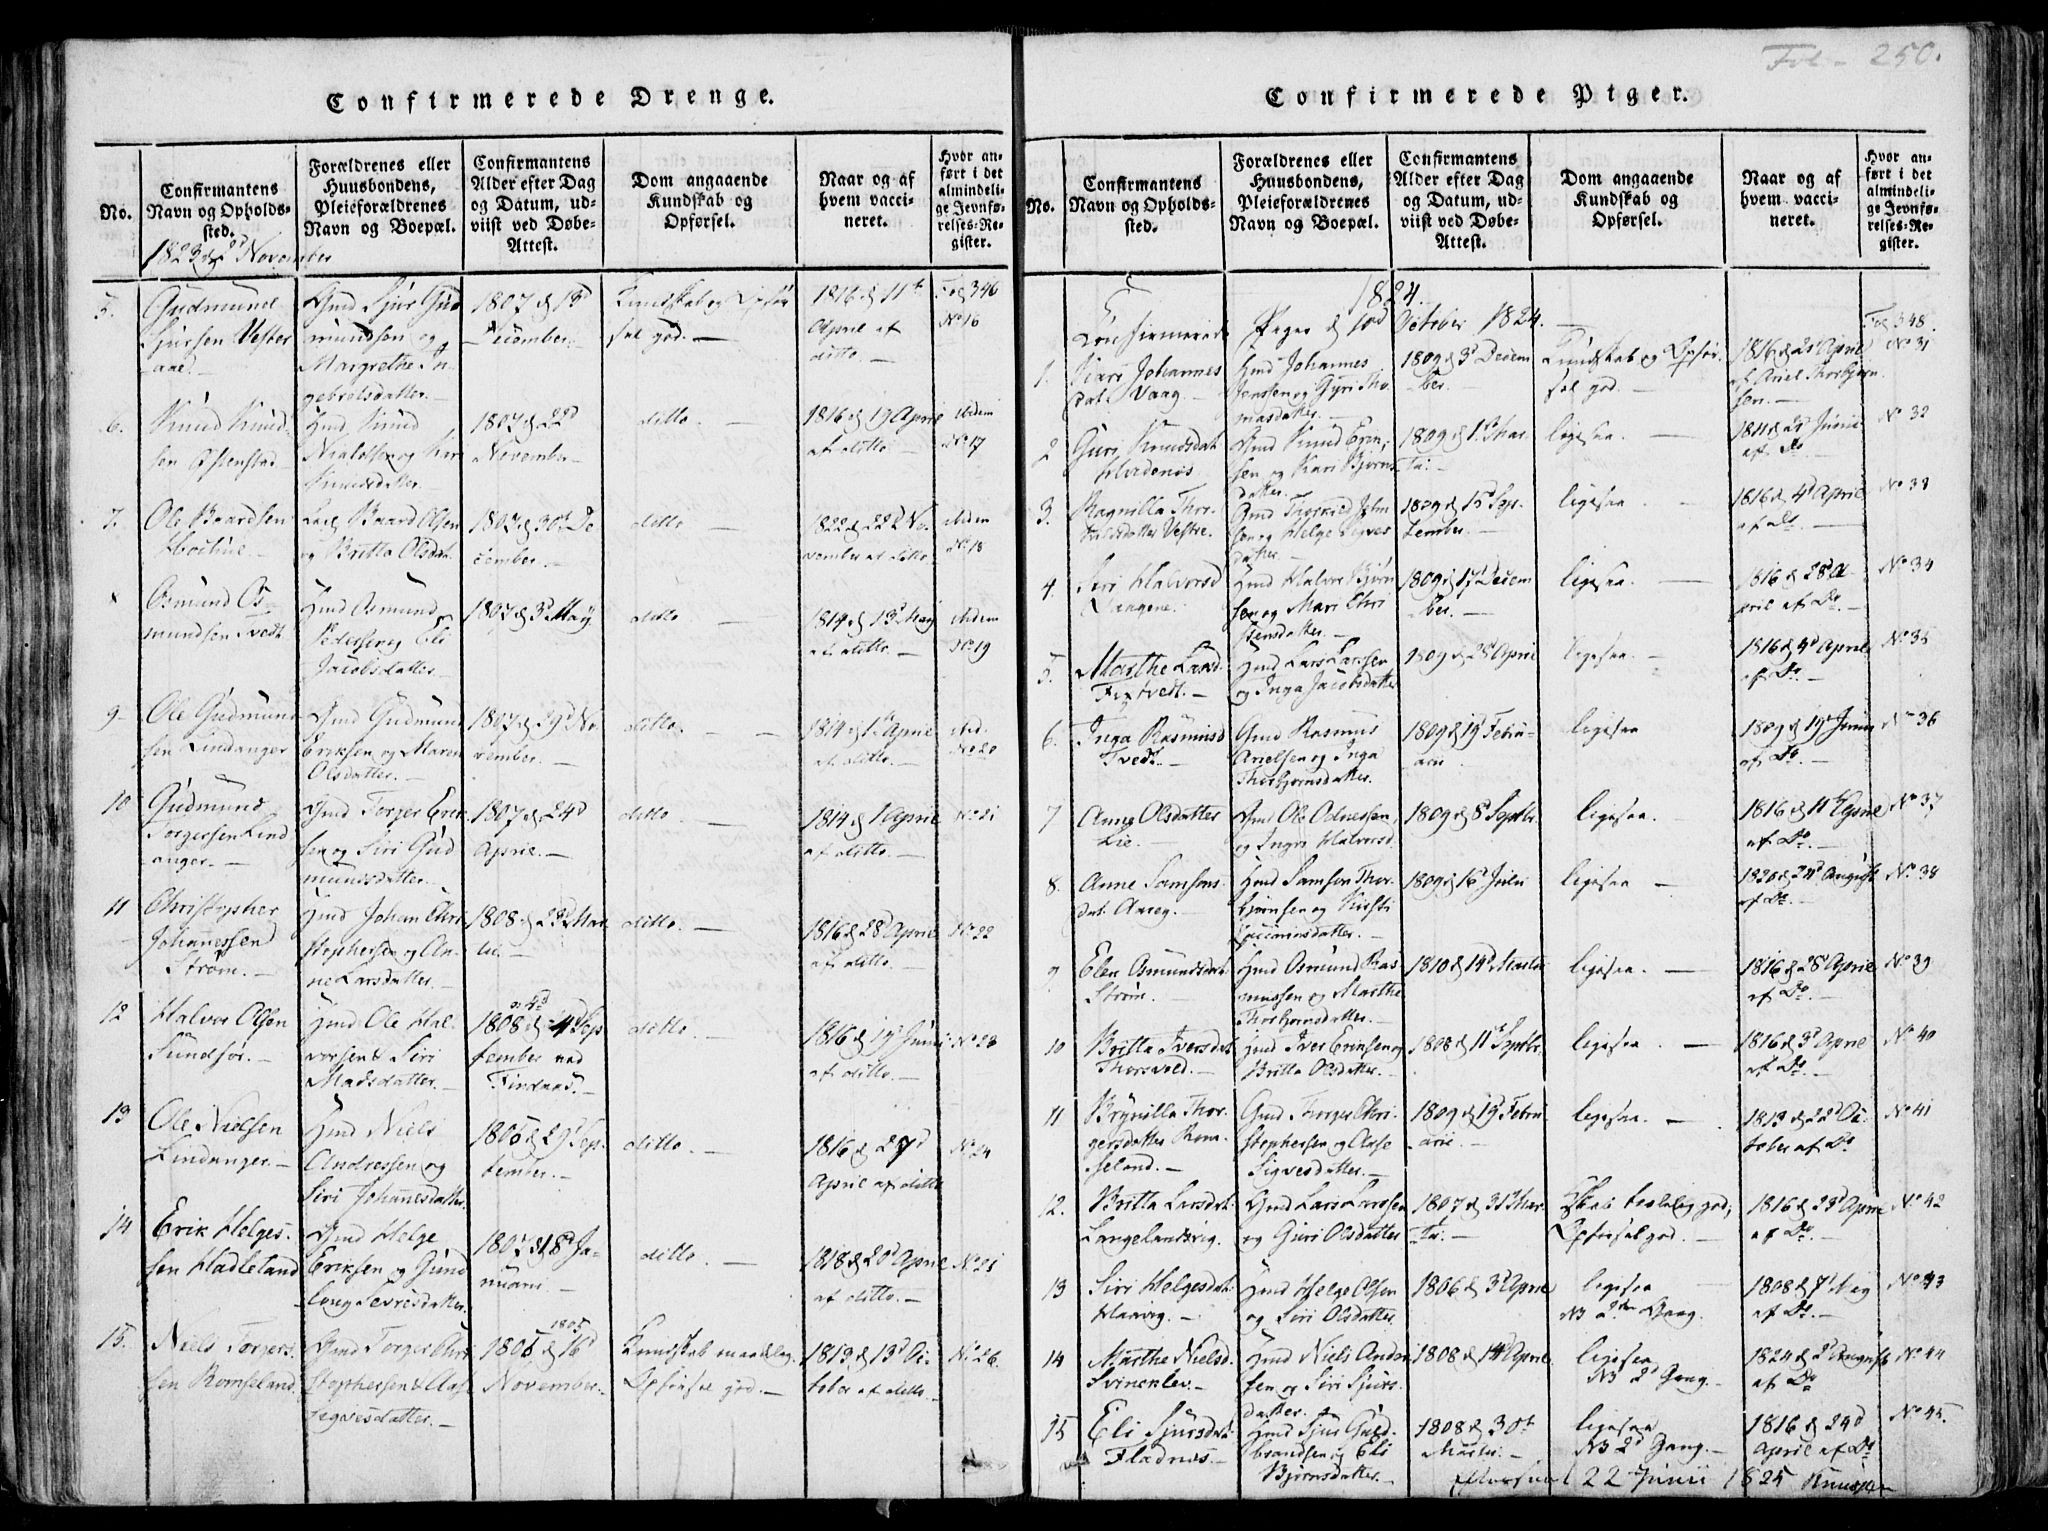 Confirmerede Drenge.
No.
Confirmantens
Navn og Opholds-
sted.
Forældrenes eller
Huusbondens,
Pleieforældrenes
Navn og Boepæl.
Confirmantens
Alder efter Dag
og Datum, ud-
viist ved Døbe-
Attest.
Dom angaaende
Kundskab og
Opførsel.
Naar og af
hvem vacci-
neret.
Hvor an-
ført i det
almindeli-
ge Jevnfø-
relses-Re-
gister.
1823 d 2d November
5. Gudmund
Sjursen Vester
aae
Gmd Sjur Gud
mundsen og
Margrethe In-
gebretsdatter.
1807 d 13d
December.
Kundskab og Opfør
sel god.
1816 d 11te
April af
ditto.
Fol 346
No 16
6. Knud Knud-
sen
Hmd Knud
og Kari
Knudsdatter.
1807 d 22d
November
ditto.
1816 d 19 April
af ditto
ibidem
No 17
7. Ole Baardsen
Baard Olsen
og Britta Olsdat.
1807 d 30t De
cember.
ditto
1822 d 22d No-
vember af ditto.
ibidem
No 18
Osmund Os-
mundsen Tvedt
Hmd Osmund
Pedersen og Eli
Jacobsdatter
1807 d 3d May
ditto.
1814 d 13d May
af ditto.
ibidem
No 19
9 Ole Gudmund
sen Lindanger
Gmd Gudmund
Eriksen og Maren
Olsdatter.
1807 d 29d No
vember.
ditto.
1814 d 1te April
af ditto.
ibid.
No 20
10 Gudmund
Torgersen Lind
anger.
Gmd Torger Erik
sen og Siri Gud
mundsdatter.
1807 d 24d
April.
ditto
1814 d 1 April
af ditto.
No 21
11 Christopher
Johannessen
Strøm.
Hmd Johan Chri
stophersen og An-
ne Larsdatter.
1808 d 23d Mar
tii.
ditto.
1816 d 28d April
af ditto.
No 22
12 Halvor Olsen
Sundfør.
Hmd Ole Hal-
vorsen & Siri
Madsdatter.
1808 d 4d Sep
tember ved
Findaas.
ditto.
1816 d 19 Junii
af ditto.
No 23
13 Ole Nielsen
Lindanger.
Hmd Niels
Andressen og
Siri Johannesdatter.
1806 d 29d Sep-
tember.
ditto.
1816 d 27d
April af ditto
No 24
14 Erik Helges-
sen Hadleland
Gmd Helge
Eriksen og Gund
1807 d 18d Ja-
nuarii.
ditto.
1818 d 20d April
af ditto.
No 25
15. Niels Torgers-
sen Romseland
Gmd Torger Chri
stophersen & Aase
Segvesdatter.
1805
1806 d 16d
November.
Kundskab maadelig.
Opførsel god.
1813 d 13d Oc-
tober af ditto.
No 26.
Fol. 250.
Confirmerede Piger.
No.
Confirmantens
Navn og Opholds-
sted.
Forældrenes eller
Huusbondens,
Pleieforældrenes
Navn og Boepæl.
Confirmantens
Alder efter Dag
og Datum, ud-
viist ved Døbe-
Attest.
Dom angaaende
Kundskab og
Opførsel.
Naar og af
hvem vacci-
neret.
Hvor an-
ført i det
almindeli-
ge Jevnfø-
relses-Re-
gister.
1824.
Confirmerede Piger d 10d October 1824.
1. Kari Johannes
dat. Vaag
Hmd Johannes
Jenssen og Gyri Tho
masdatter.
1809 d 3d Decem
ber.
Kundskab og Opfør-
sel god.
1816 d 21 April
af Ariel Thorbjørn
sen.
Fol 348.
No 31
2 Guri Knudsdat
Hvidenes
Gmd Knud Erik-
sen og Kari Bjørns
datter.
1809 d 1te Mar
tii.
ligesaa.
1811 d 28 Junii
af Do
No 32
3. Ragnilla Thor-
kildsdatter Vestre.
Gmd Thorkild John
sen og Helge Sigves
datter.
1809 d 15d Sep-
tember.
ligesaa
1816 d 4d April
af do
No 33
4. Siri Halvorsd
Hmd Halvor Bjørn
sen og Mari Chri
stensdatter.
1809 d 17d Decem
ber.
ligesaa.
1816 d 28d A-
pril af Do.
No 34
5. Marthe Larsd.
Hmd Lars Larssen
og Inga Jacobsdatter
1809 d 28d April
ligesaa.
1816 d 4d April
af Do.
No 35
6. Inga Rasmusd
Tvedt.
Gmd Rasmus
Arielsen og Inga
Thorbjørnsdatter.
1809 d 19 Febru-
arii
ligesaa
1809 d 19 Junii
af Do.
No 36
7 Anna Olsdatter
Lie.
Gmd Ole Odnessen
og Ingri Halvorsd.
1809 d 8d Septbr.
ligesaa.
1816 d 11te April
af Do.
No 37
8. Anne Samsons-
dat. Aareg.
Hmd Samson Thor-
bjørnsen og Kirsti
Zacariasdatter.
1809 d 16d Julii
ligesaa
1820 d 24d August
af Do.
No 38
9 Elen Osmundsdat.
Strøm.
Hmd Osmund Ras
mussen og Marthe
Thorbjørnsdatter.
1810 d 14d Martii
ligesaa.
1816 d 28d April
af Do.
No 39
10 Britta Iversdat
Thorsvold.
Hmd Iver Eriksen og
Britta Olsdatter.
1808 d 11te Septbr.
ligesaa.
1816 d 3d April
af Do.
No 40
11 Brynilla Thor-
gersdatter Rom-
seland.
Gmd Thorger Chri-
stophersen og Aase
Sigvesdatter.
1809 d 19d Febru
arii.
ligesaa.
1813 d 22d Oc-
tober af Do
No 41
12. Britta Larsdat.
Langelandsvig.
Gmd Lars Larssen
og Guri Olsdatter
1807 d 31te Mar-
tii.
Kskab temlelig god,
Opførsel god.
1816 d 23d April
af Do.
No 42
13 Siri Helgesdat:
Haavig.
Hmd Helge Olsen
og Siri Olsdatter.
1806 d 3d April
ligesaa
NB 2den Gang.
1808 d 7d May
af Do.
No 43
14 Marthe Nielsd.
Svineklev.
Hmd Niels Andr
sen og Siri Sjurs-
datter.
1808 d 14d April.
ligesaa
NB 2d Gang.
1824 d 2d August
af Do
No 44
15 Eli Sjursdat:
Fladnes.
Hmd Sjur Guld-
brandsen og Eli
Bjørnsdatter.
1808 d 30t
Martii.
ligesaa
NB 2d Gang.
1816 d 24d
April af Do
No 45.
22 Junii 1825